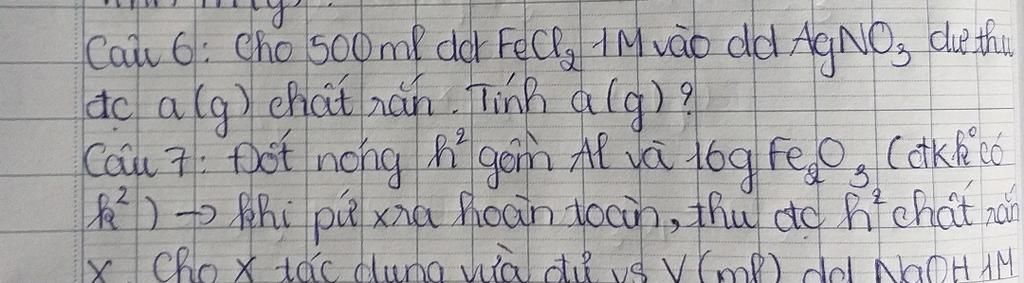 Câu 6: Cho 500ml dd FeCl₂ 1M vào dd AgNO₃ dư thu
đc a(g) chất rắn. Tính a(g)?
Câu 7: Đốt nóng h² gồm Al và 16g Fe₂O₃ (đk k° có
k²) → khi pứ xra hoàn toàn, thu đc h² chất rắn
X Cho X tác dụng vừa đủ vs V(ml) dd NaOH 1M